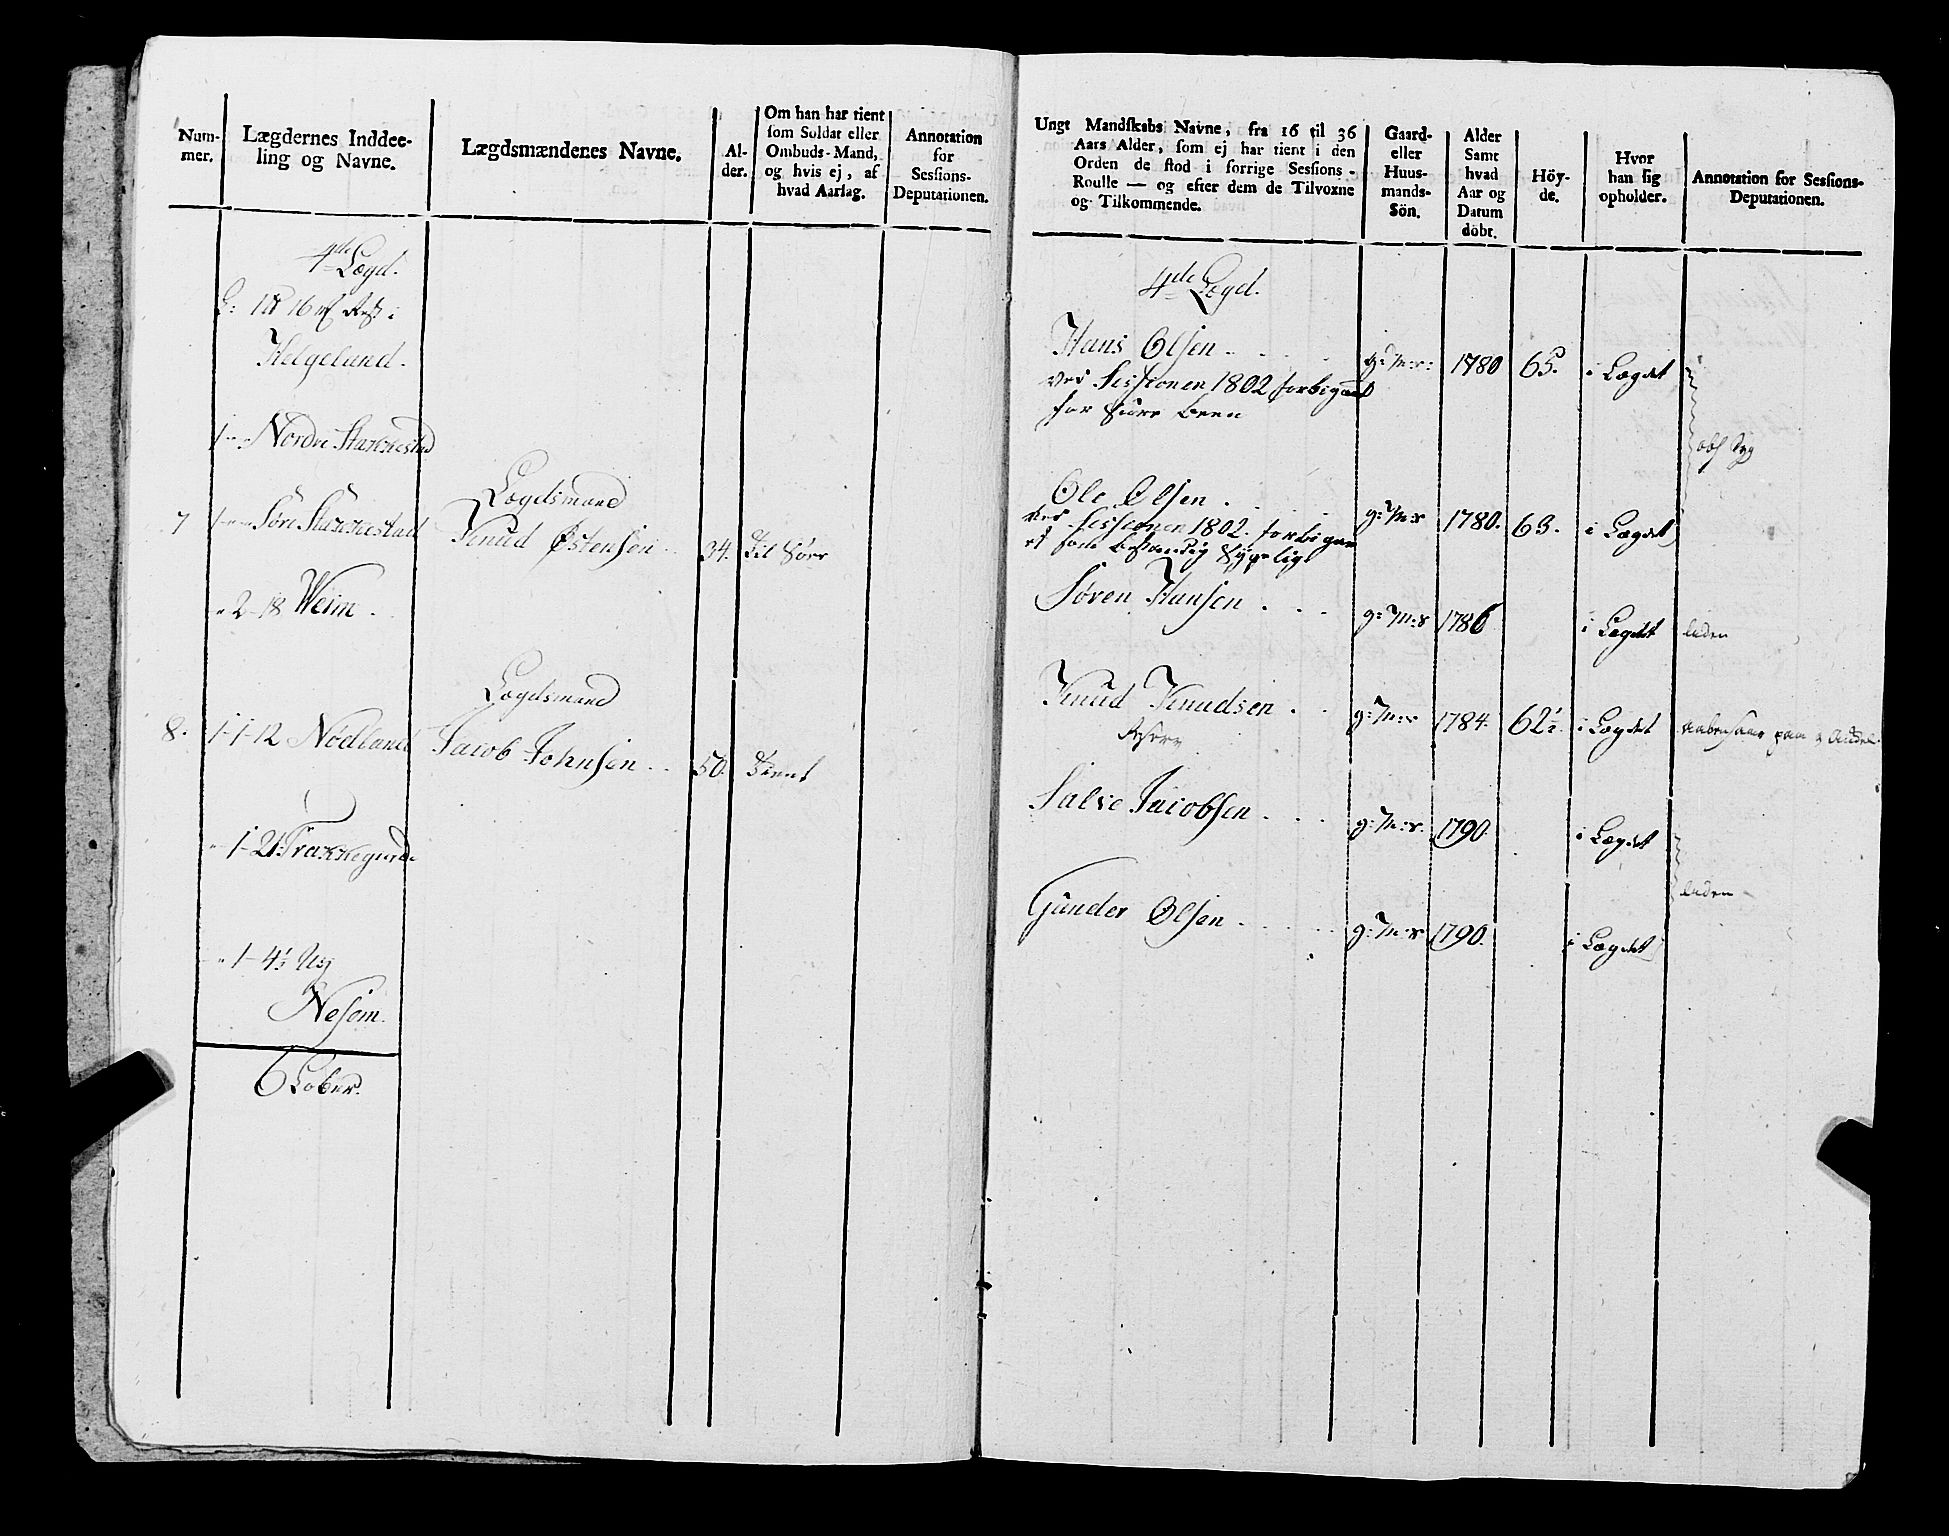 Num-
mer.
Lægdernes Inddee-
ling og Navne.
Lægdsmændenes Navne.
Al-
der.
Om han har tient
som Soldat eller
Ombuds-Mand,
og hvis ej, af
hvad Aarsag.
Annotation
for
Sessions-
Deputationen.
4de Lægd.
Helgeland.
Nordre Stakkestad
Lægdsmand
7 Søre Stakkestad Knud Østensen 34.
2-18 Weim.
Lægdsmand
8. 1-1-12 Nødland Jacob Johnsen 50. Tient
1-21
1-4½
Nesem.
6 Lober.
Ungt Mandskabs Navne, fra 16 til 36
Aars Alder, som ej har tient i den
Orden de stod i forrige Sessions-
Roulle — og efter dem de Tilvoxne
og Tilkommende.
Gaard-
eller
Huus-
mands-
Sön.
Alder
Samt
hvad
Aar og
Datum
döbt.
Höy-
de.
Hvor
han sig
opholder.
Annotation for Sessions-
Deputationen.
4de Lægd.
Hans Olsen g: M: s: 1780 65. i Lægdet
ved Sessionen 1802 forbigaaet
for been
Ole Olsen. g: M: s 1780. 63. i Lægdet
ved Sessionen 1802. forbigaa
et som bestandig Sygelig
Søren Hansen g: M: s 1786 i Lægdet liden
Knud Knudsen g: M: s 1784. 62½. i Lægdet
Salve Jacobsen g: M: s. 1790. i Lægdet
Gunder Olsen g: M: s 1790. i Lægdet
liden